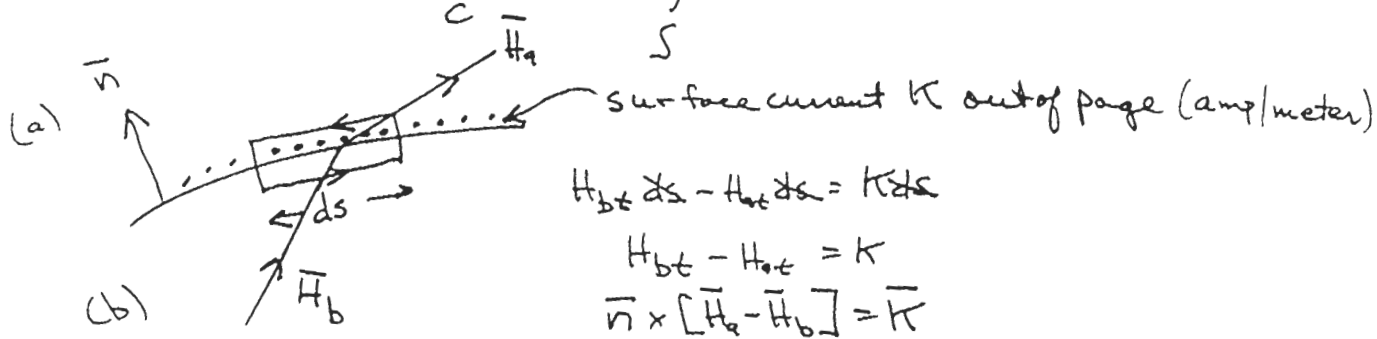 C
S
H̄ₐ
n̄
(a)
surface current K out of page (amp/meter)
H_bt ds - H_at ds = K ds
ds
H_bt - H_at = K
(b)
H̄_b
n̄ × [H̄ₐ - H̄_b] = K̄